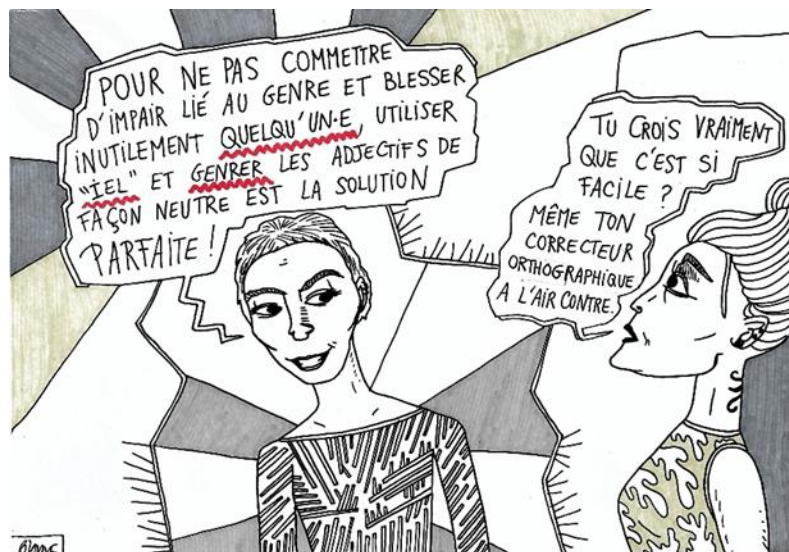 POUR NE PAS COMMETTRE
D'IMPAIR LIÉ AU GENRE ET BLESSER
INUTILEMENT QUELQU'UN·E, UTILISER
"IEL" ET GENRER LES ADJECTIFS DE
FAÇON NEUTRE EST LA SOLUTION
PARFAITE !
TU CROIS VRAIMENT
QUE C'EST SI
FACILE ?
MÊME TON
CORRECTEUR
ORTHOGRAPHIQUE
A L'AIR CONTRE.